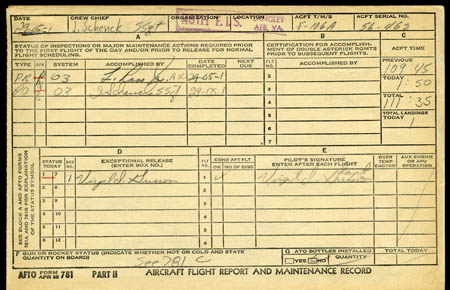 DATE CREW CHIEF ORGANIZATION LOCATION ACFT T/M/S ACFT SERIAL NO.
J. Schenck SSgt LANGLEY AFB, VA. F-106A 56-463
STATUS OF INSPECTIONS OR MAJOR MAINTENANCE ACTIONS REQUIRED PRIOR TO THE FIRST FLIGHT OF THE DAY AND/OR PRIOR TO RELEASE FOR NORMAL FLIGHT SCHEDULING.
A
CERTIFICATION FOR ACCOMPLISHMENT OF DOUBLE ASTERISK ITEMS PRIOR TO THIS FLIGHT
B
C
TIME
TYPE ACCOMPLISHED BY DATE COMPLETED NEXT DUE
FLT NO. ACCOMPLISHED BY
PREVIOUS
109:45
PR 03 29-05-1
TODAY
1:50
PO 03 J Schenck SSgt 29-05-1
TOTAL
111:35
TOTAL LANDINGS TODAY
1
1
2
3
4
5
SEE BLOCK A AND AFTO FORMS 781A AND 781B FOR EXPLANATION OF THE STATUS SYMBOL
D
STATUS TODAY BOX NO. EXCEPTIONAL RELEASE (ENTER BOX NO.)
E
FLT NO. COND AFT FLT OK NO OF DISC PILOT'S SIGNATURE ENTER AFTER EACH FLIGHT
OVER TEMP ENCTRD AUX ENGINE OR APU OPERATION
1 7 1 Virgil I. Grissom 1 Virgil I. Grissom Capt
2 8 2
3 9 3
4 10 4
5 11 5
6 12 6
F GUN OR ROCKET STATUS (INDICATE WHETHER HOT OR COLD AND STATE QUANTITY ON BOARD)
See 781 C
G ATO BOTTLES INSTALLED
YES NO QUANTITY
TOTAL TODAY
AFTO FORM APR 58 781 PART II AIRCRAFT FLIGHT REPORT AND MAINTENANCE RECORD